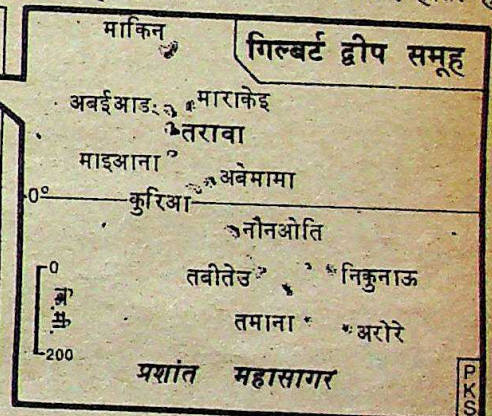 माकिन
गिल्बर्ट द्वीप समूह
अबईआड
माराकेइ
तरावा
माइआना
अबेमामा
0°
कुरिआ
नौनओति
0
तबीतेउ
निकुनाऊ
कि.मी.
तमाना
अरोरे
200
प्रशांत महासागर
PKS